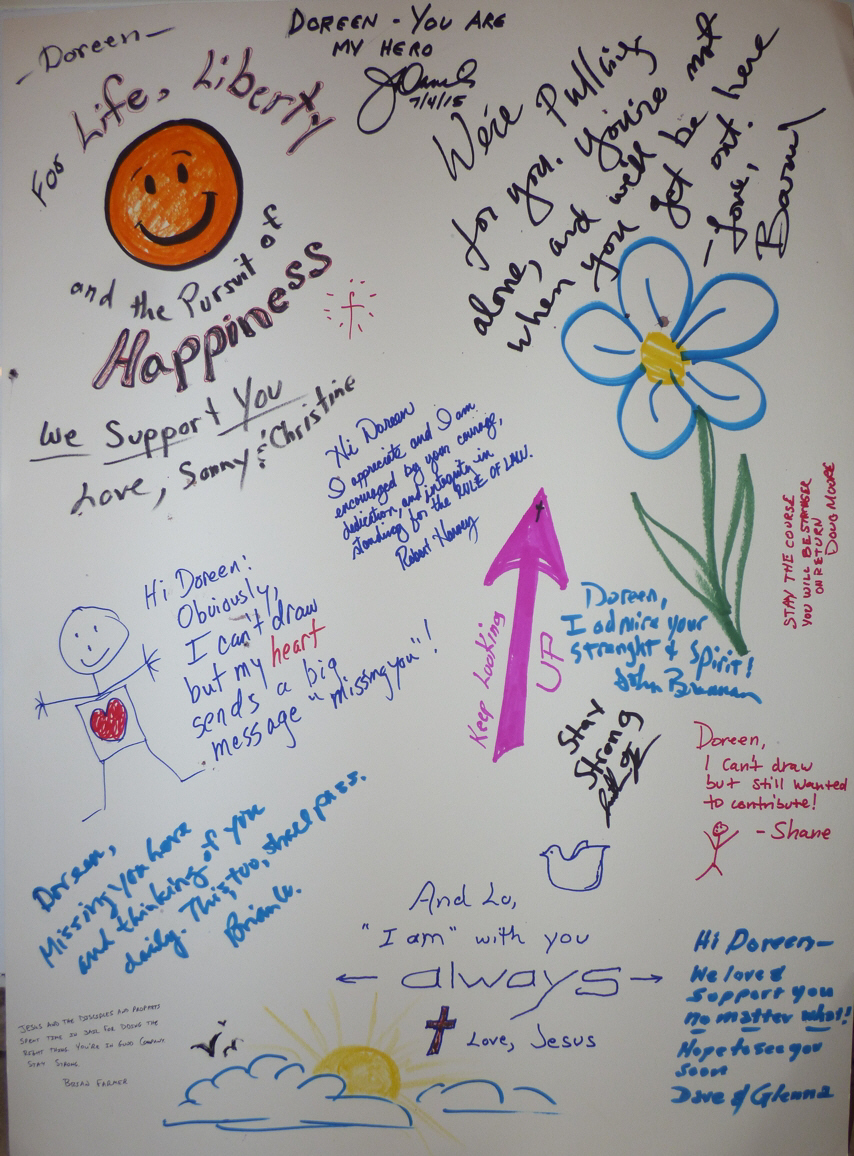 -Doreen-
For Life, Liberty
and the Pursuit of
Happiness
We Support You
Love, Sonny & Christine
DOREEN - YOU ARE
MY HERO
7/4/15
We're Pulling
for you. You're not
alone, and we'll be here
when you get out.
-Love,
Hi Doreen
I appreciate and I am
encouraged by your courage,
dedication, and integrity in
standing for the RULE OF LAW.
Robert
STAY THE COURSE
YOU WILL BE STRONGER
ON RETURN
DOUG MOORE
Hi Doreen:
Obviously,
I can't draw
but my heart
sends a big
message "missing you"!
Keep Looking
UP
Doreen,
I admire your
stranght & Spirit!
John
Stay
Strong
Doreen,
I can't draw
but still wanted
to contribute!
-Shane
Doreen,
Missing you here
and thinking of you
daily. This, too, shall pass.
Brian W.
And Lo,
"I am" with you
always
Love, Jesus
Hi Doreen-
We love &
support you
no matter what!
Hope to see you
soon
Dave & Glenna
JESUS AND THE DISCIPLES AND PROPHETS
SPENT TIME IN JAIL FOR DOING THE
RIGHT THING. YOU'RE IN GOOD COMPANY
STAY STRONG
BRIAN FARMER